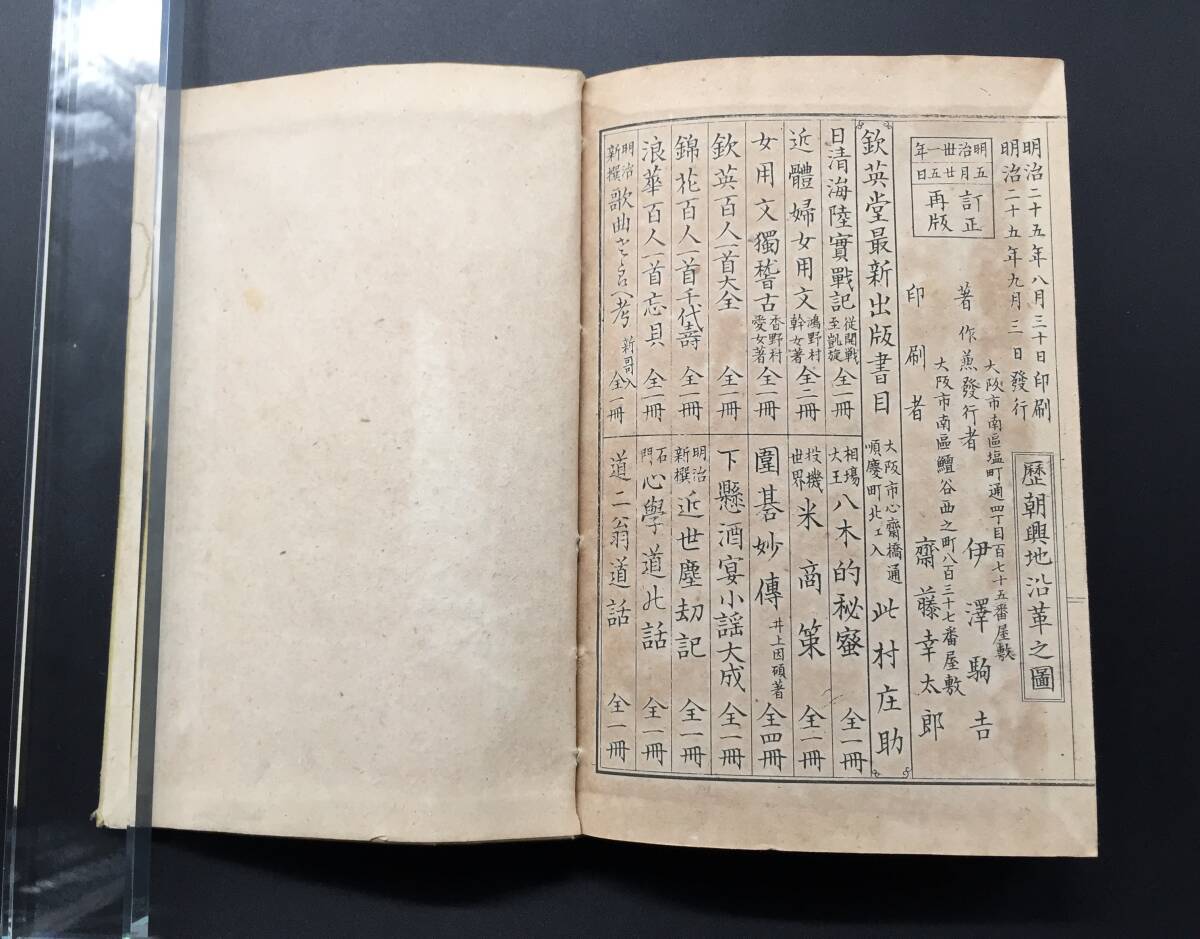 明治二十五年八月三十日印刷
明治二十五年九月三日發行
歷朝輿地沿革之圖
明治卅一年
五月廿五日
訂正
再版
大阪市南區塩町通四丁目百七十五番屋敷
著作蒹發行者 伊澤駒吉
大阪市南區鰻谷西之町八百三十七番屋敷
印刷者 齋藤幸太郎
欽英堂最新出版書目 大阪市心齋橋通順慶町北エ入 此村庄助
日清海陸實戰記 從開戰至凱旋 全一冊
近體婦女用文 鴻野村幹女著 全二冊
女用文獨稽古 香野村愛女著 全一冊
欽英百人一首大全 全一冊
錦花百人一首千代壽 全一冊
浪華百人一首忘貝 全一冊
明治新撰 歌曲さらへ考 新哥入 全一冊
相場大王 八木的秘蜜 全一冊
投機世界 米商策 全一冊
圍碁妙傳 井上因碩著 全四冊
下懸酒宴小謡大成 全一冊
明治新撰 近世塵劫記 全一冊
石門 心學道の話 全一冊
道二翁道話 全一冊